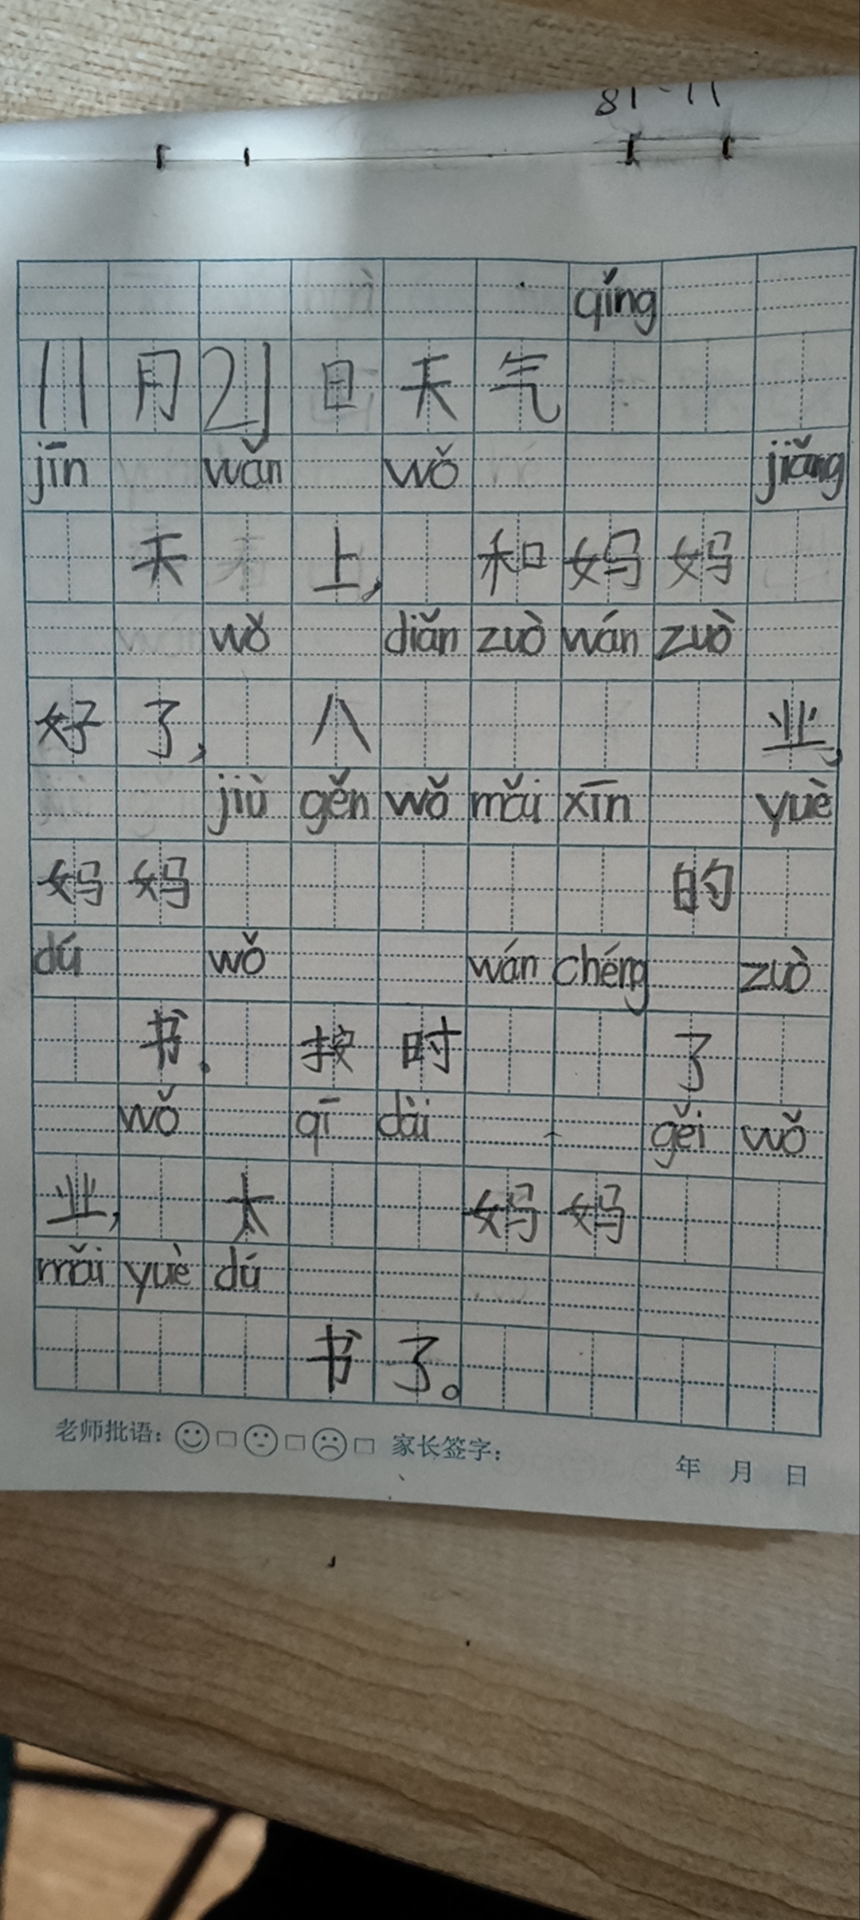 qíng
11月21日天气
jīn wǎn wǒ jiǎng
天上,和妈妈
wǒ diǎn zuò wán zuò
好了,八业,
jiù gěn wǒ mǎi xīn yuè
妈妈的
dú wǒ wán chéng zuò
书.按时了
wǒ qī dài gěi wǒ
业,太妈妈
mǎi yuè dú
书了。
老师批语: 家长签字:
年 月 日